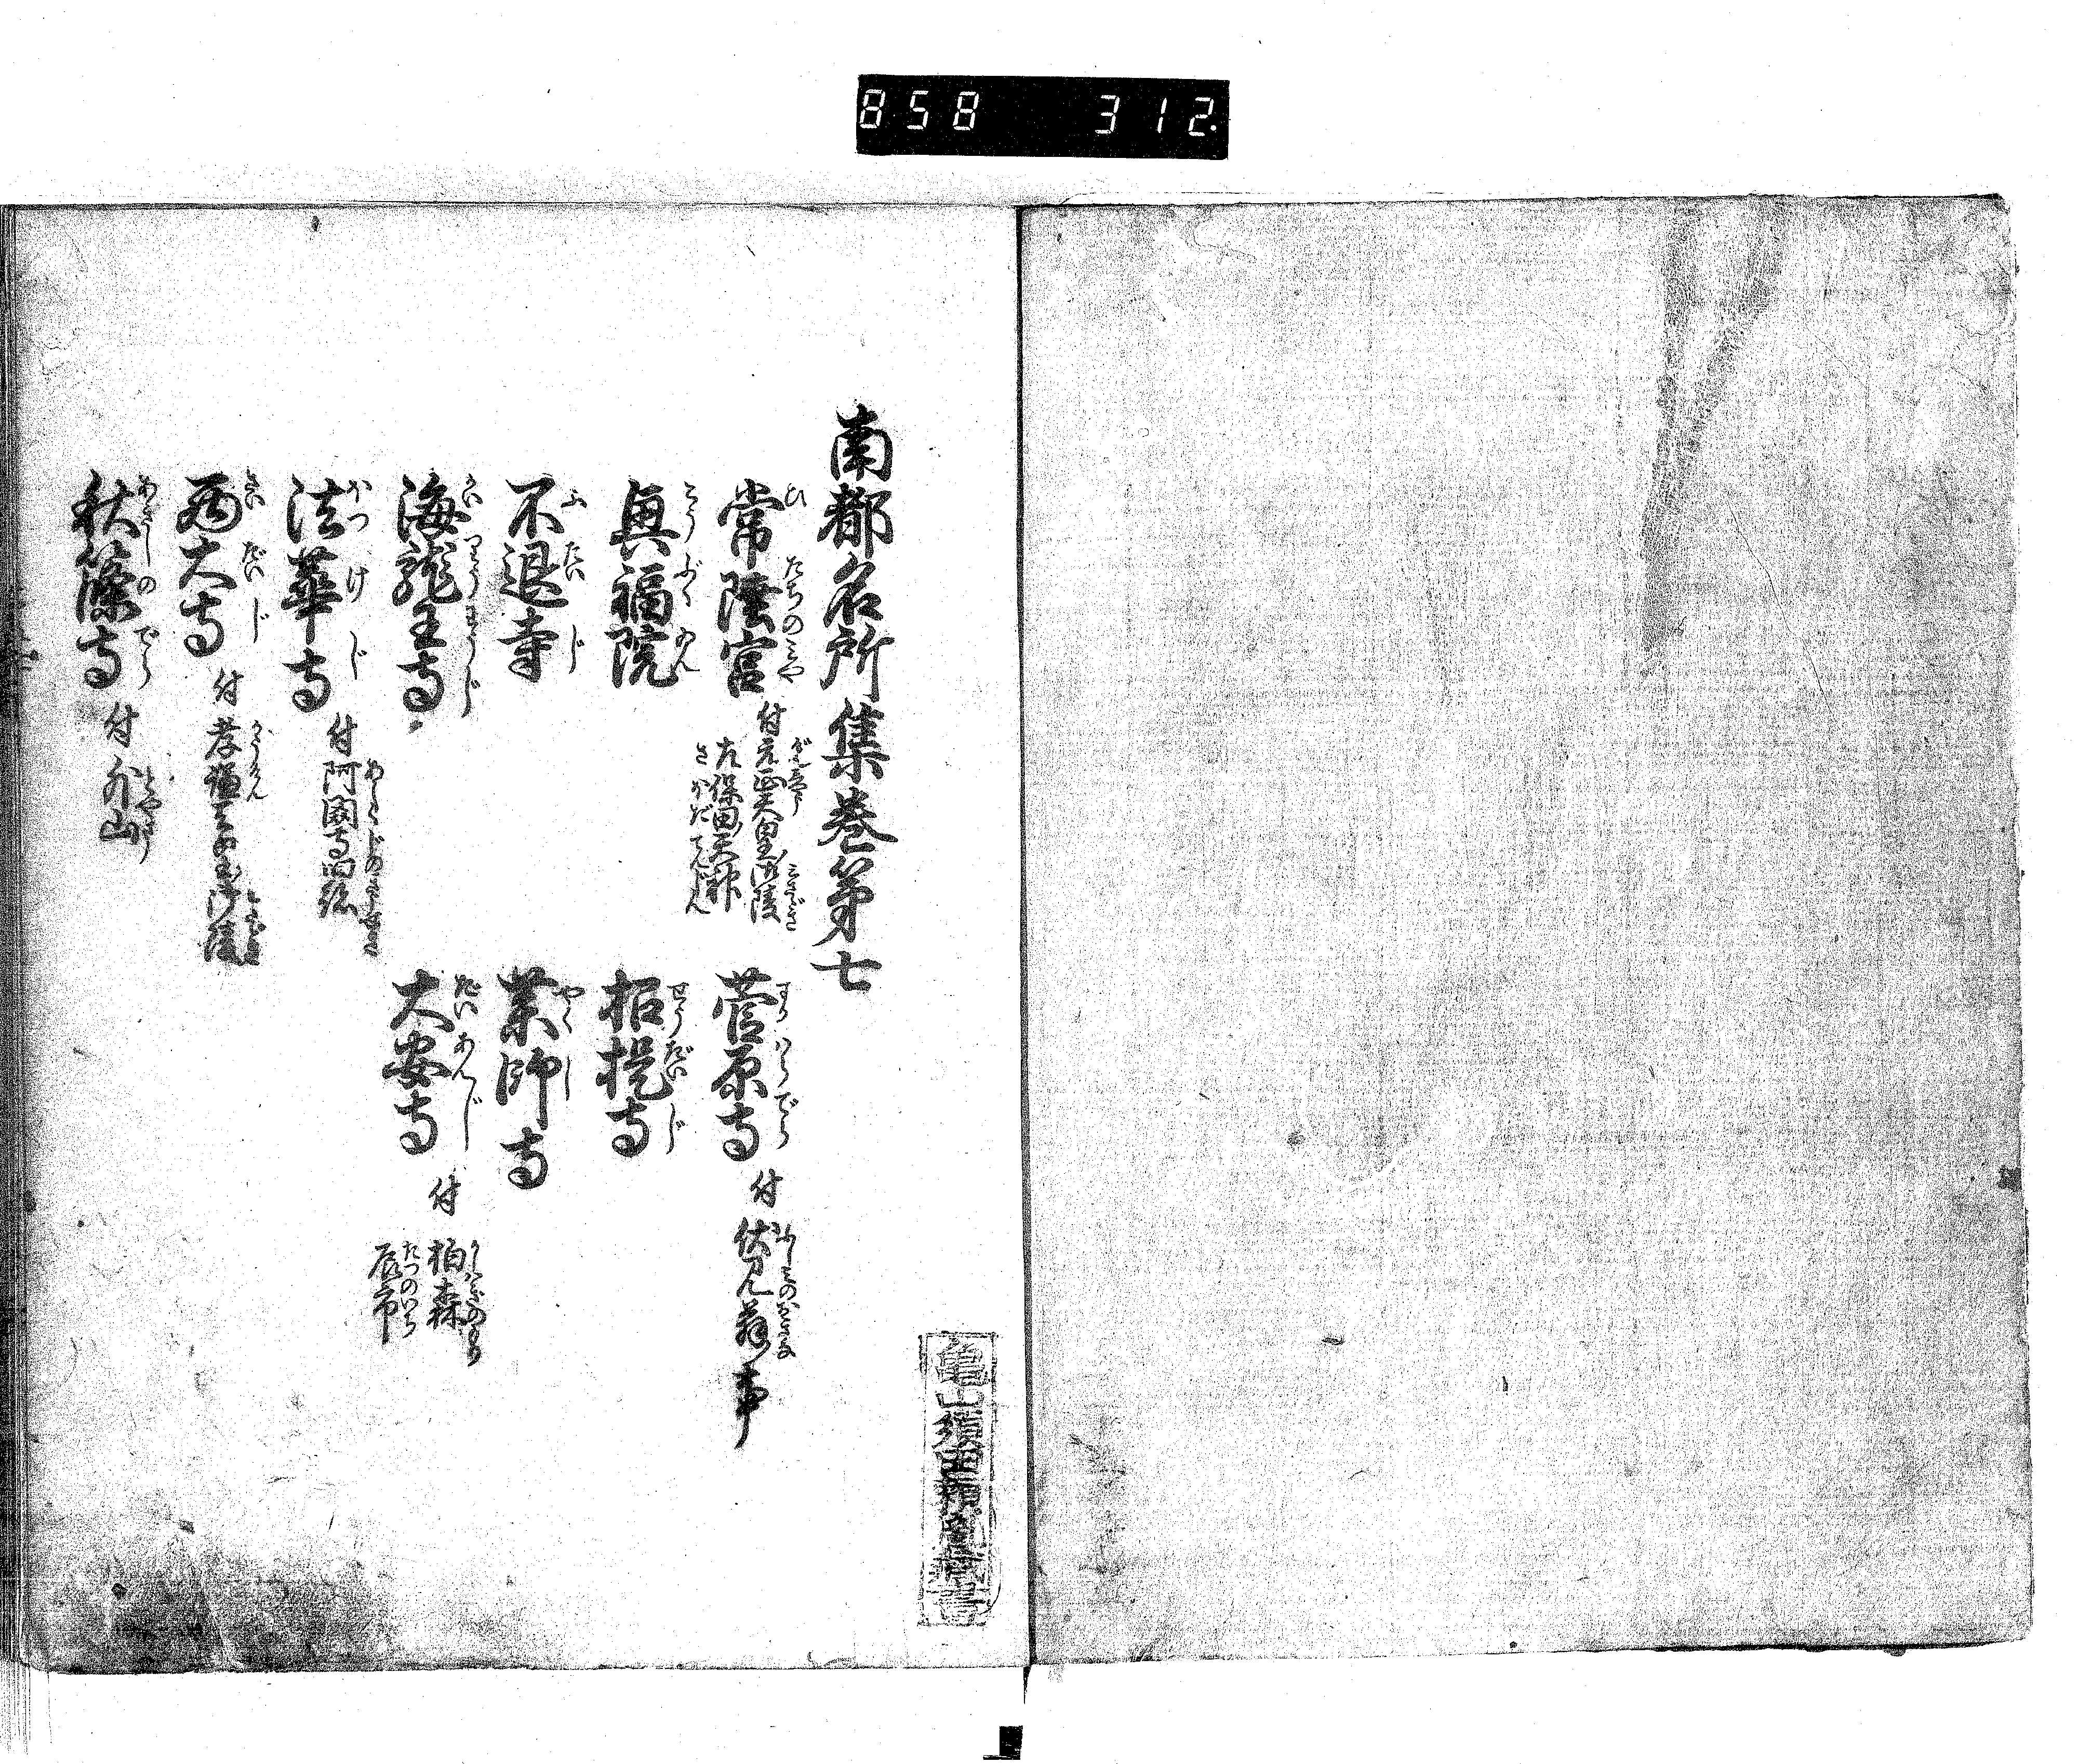 858 312
南都名所集巻第七
常陸宮 付 元正天皇御陵
佐保田天神
興福院
不退寺
海龍王寺
法華寺 付 阿閦寺旧跡
西大寺 付 孝謙天皇御陵
秋篠寺 付 外山
菅原寺 付 伏見翁事
招提寺
薬師寺
大安寺 付 柏森
辰市